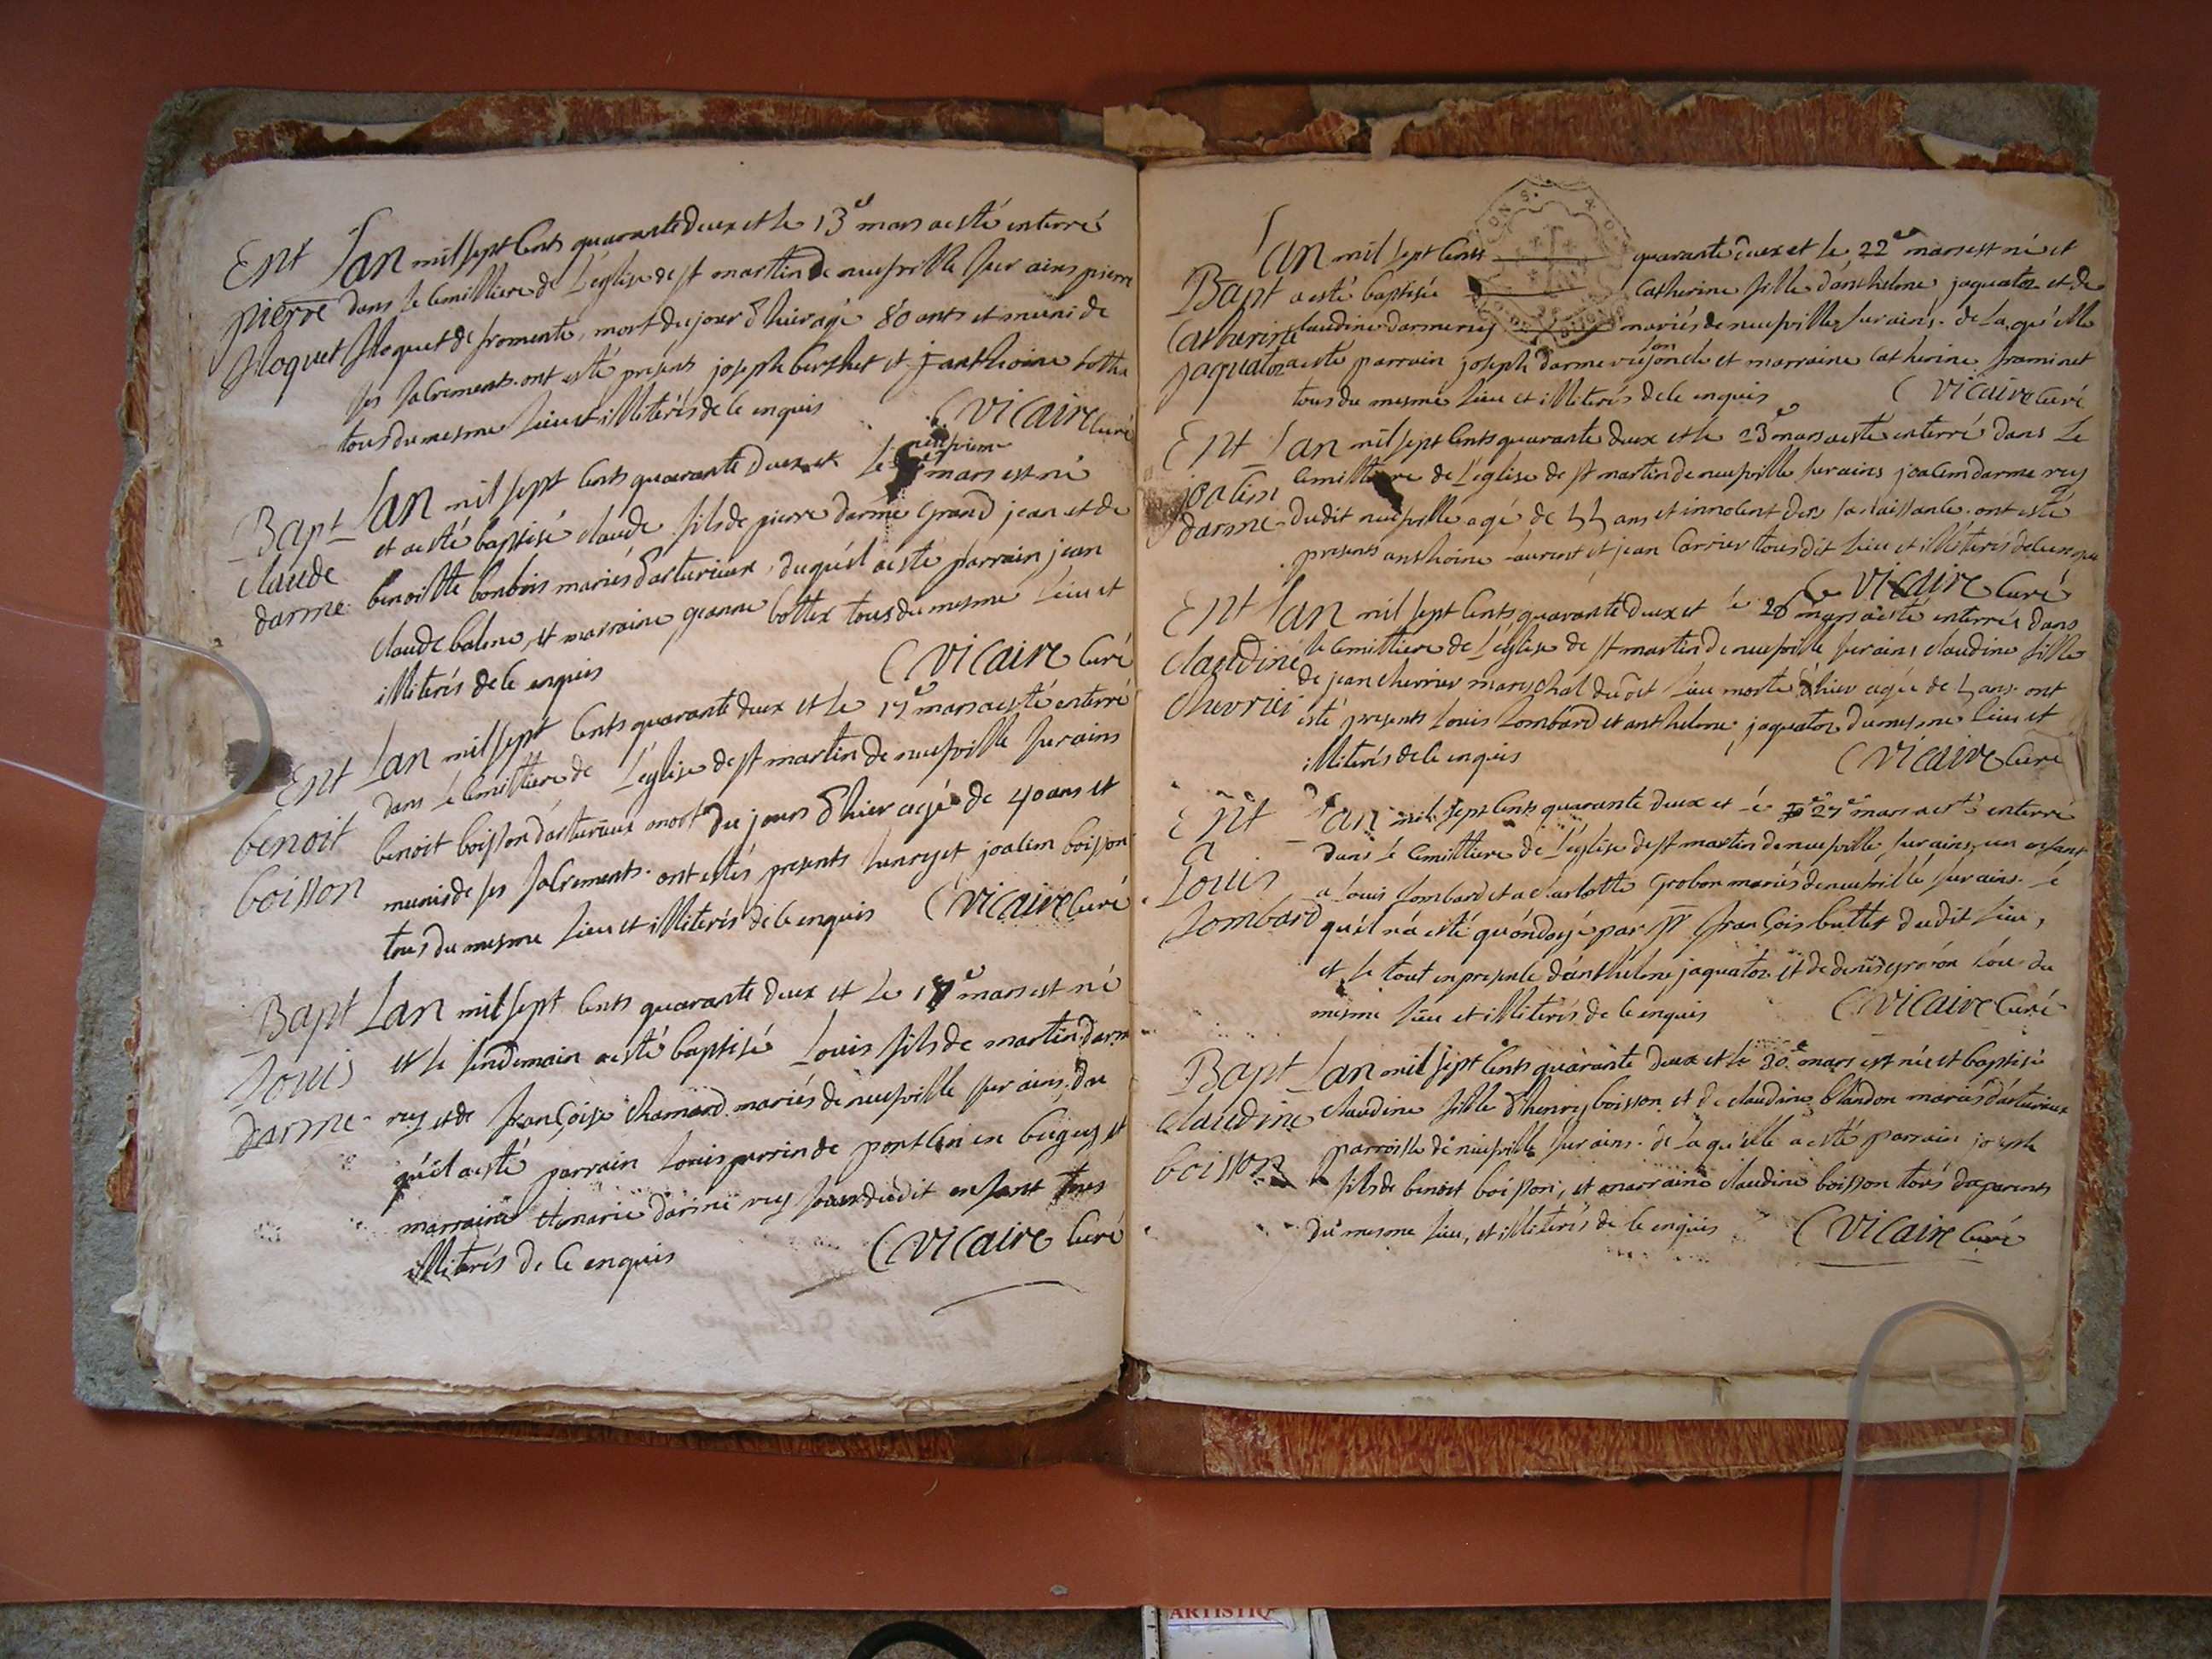 Ent Lan mil sept Cents quarante deux et le 13e mars a esté enterré
pierre dans le Cimittiere de L'eglise de st martin de neufville sur ains pierre
floquet floquet de fromente, mort du jour d'hier agé 80 ants et muni de
ses sacrements. ont esté présents joseph berthet et janthoine
tous du mesme lieu et illiterés de ce enquis C vicaire Curé
Bapt Lan mil sept Cents quarante deux et le neufvieme mars est né
claude et a esté baptisé claude fils de pierre darme Grand jean et de
darme benoitte bonbois mariés d'arturieux, duquél a esté parrain jean
claude balme, et marraine jeanne bottex tous du mesme lieu et
illiterés de ce enquis C vicaire Curé
Ent Lan mil sept Cents quarante deux et le 17e mars a esté enterré
dans le Cimittiere de L'eglise de st martin de neufville sur ains
benoit benoit boisson d'arturieux mort du jour d'hier agé de 40 ans et
boisson munis de ses sacrements. ont estés presents henry et joacim boisson
tous du mesme lieu et illiterés de ce enquis C vicaire Curé
Bapt Lan mil sept Cents quarante deux et le mars est né
Louis et le lendemain a esté baptisé Louis fils de martin darme
darme- rey et de françoise chamard mariés de neufville sur ains. du
quél a esté parrain Louis perrin de pontcin en bugey et
marraine darme rey dudit enfant tous
illiterés de ce enquis C vicaire Curé
Lan mil sept Cents quarante deux et le 22e mars est né et
Bapt a esté baptisée Catherine fille d'anthelme jaquatoz et de
Catherine claudine darme rey mariés de neufville sur ains. de la qu'elle
jaquatoz a esté parrain joseph darme rey son oncle et marraine Catherine framinet
tous du mesme lieu et illiterés de ce enquis C vicaire Curé
Ent Lan mil sept Cents quarante deux et le 23e mars a esté enterré dans le
joacim Cimittiere de L'église de st martin de neufville sur ains joacim darme rey
darme- dudit neufville agé de ans et innocent des sa naissance. ont esté
presents anthoine Laurent et jean Carrier tous dit lieu et illiterés de ce enquis
C vicaire Curé
Ent Lan mil sept Cents quarante deux et le 26 mars a esté enterrée dans
claudine le Cimittiere de L'église de st martin de neufville sur ains claudine fille
chevrier de jean chevrier mareschal dudit lieu morte d'hier agée de ans. ont
esté presents Louis Lombard et anthelme jaquatoz du mesme lieu et
illiterés de ce enquis C vicaire Curé
Ent Lan mil sept Cents quarante deux et le 27e mars a esté enterré
a dans le Cimittiere de L'église de st martin de neufville sur ains, un enfant
Louis a Louis Lombard et a charlotte Grobon mariés de neufville sur ains. Le
Lombard qu'él n'a esté qu'ondoyé par françois buttet dudit lieu,
et le tout en presence d'anthélme jaquatoz et de du
mesme lieu et illiterés de ce enquis C vicaire Curé
Bapt Lan mil sept Cents quarante deux et le 30e mars est née et baptisée
claudine claudine fille d'henry boisson et de claudine blandon mariés d'arturieux
boisson parroisse de neufville sur ains. de la qu'elle a esté parrain joseph
fils de benoit boisson, et marraine claudine boisson tous parents
du mesme lieu, et illiterés de ce enquis C vicaire Curé
ARTISTIQ